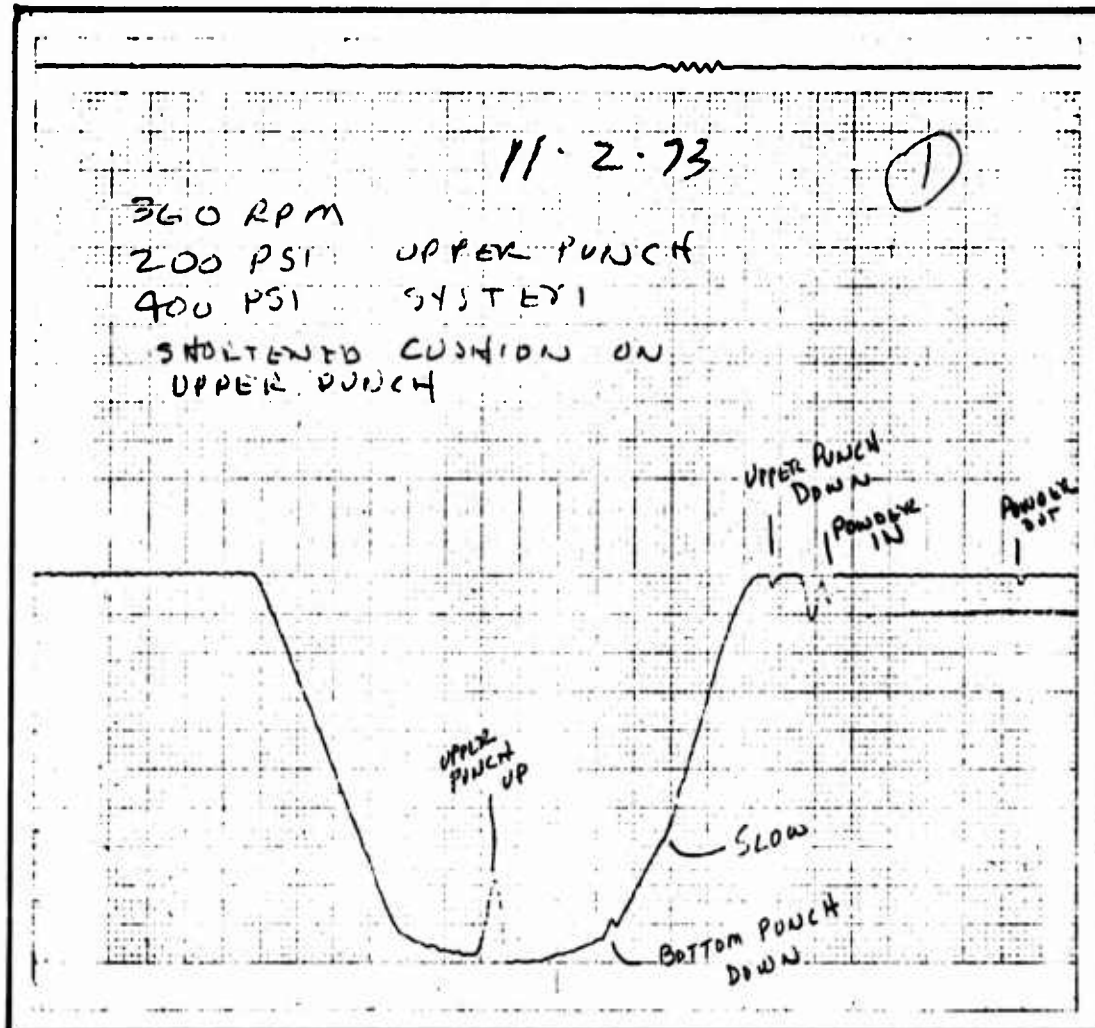 11·2·73
1
360 RPM
200 PSI UPPER PUNCH
400 PSI SYSTEM
SHORTENED CUSHION ON
UPPER PUNCH
UPPER PUNCH
DOWN
POWDER
IN
POWDER
OUT
UPPER
PUNCH
UP
SLOW
BOTTOM PUNCH
DOWN